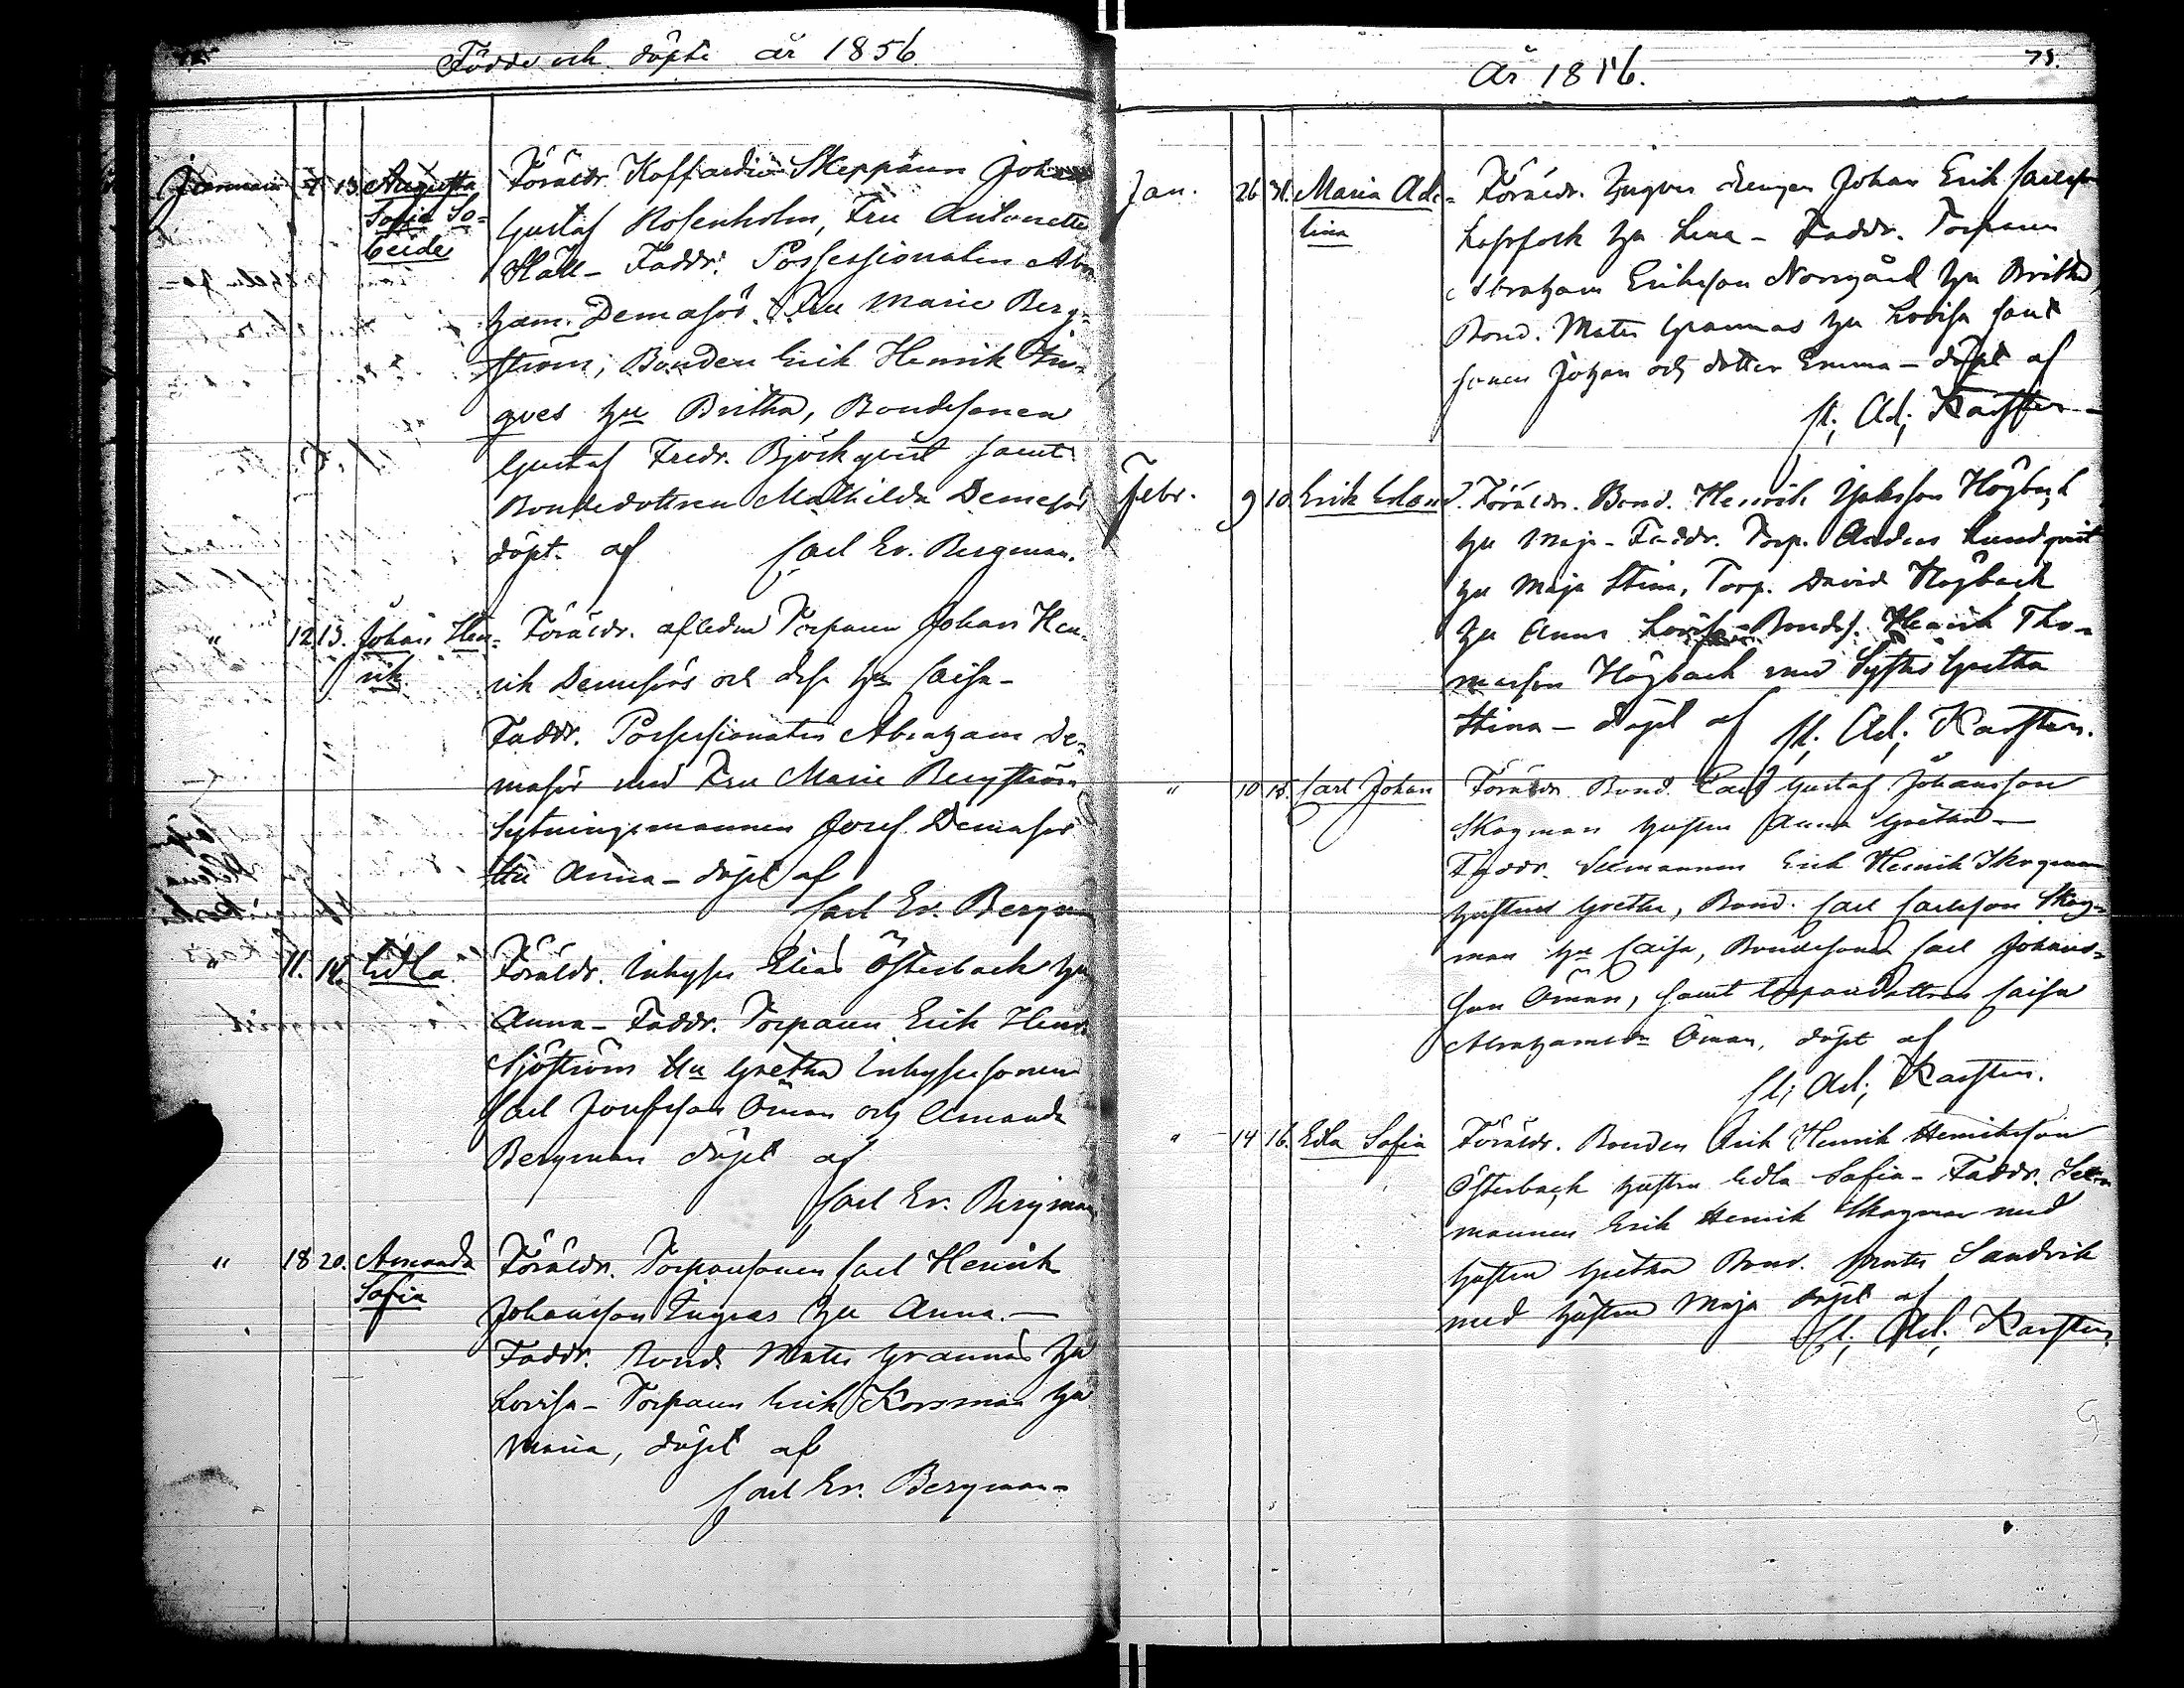 Födde och döpte år 1856
Januari 7. 13 Augusta Föräldr. Koffardie Skeppären Johan
Sofia So= Gustaf Rosenholm, Fru Antonette
beide Häll – Faddr. Possessionaten Abra
ham Demasör, Fru Marie Berg=
ström, Bonden Erik Henrik In=
gves hu Britha, Bondesonen
Gustaf Fredr. Björkqvist samt
Bondedottren Mathilda Demasör
döpt af Carl Ev. Bergman.
" 12. 13. Johan Hen= Föräldr. afledne Torparen Johan Hen=
rik rik Demasörs och dess hu Caisa –
Faddr. Possessionaten Abraham De=
masör med Fru Marie Bergström
Sytningsmannen Josef Demasör
Hu Anna – döpt af
Carl Ev. Bergman
" 11. 14. Edla Föräldr. Inhyses Elias Österback hu
Anna – Faddr. Torparen Erik Henr.
Sjöström Hu Gretha Inhysesonen
Carl Josefsson Öman och Amanda
Bergman döpt af
Carl Ev. Bergman
" 18 20. Amanda Föräldr. Torparsonen Carl Henrik
Sofia Johansson Ingves hu Anna. –
Faddr. Bond. Mats Grannas hu
Lovisa – Torparen Erik Korsman hu
Maria, döpt af
Carl Ev. Bergman –
75.
År 1856.
Jan. 26 31. Maria Ade= Föräldr. Ingves drengen Johan Erik Carlsson
lina hu Lena – Faddr. Torparen
Abraham Eriksson Norrgård hu Britha,
Bond. Mats Grannas hu Lovisa samt
sonen Johan och dotter Emma – döpt af
Cl. Ad. Karsten –
Febr. 9 10. Erik Edvard. Föräldr. Bond. Henrik Högback
hu Maja – Faddr. Torp. Anders Lundqvist
hu Maja Stina, Torp. David Högback
hu Anna Lovisa – Bonds. Henrik Tho=
masson Högback med Syster Gretha
Stina – döpt af Cl. Ad. Karsten.
" 10 15. Carl Johan Föräldr. Bond. Carl Gustaf Johansson
Skogman hustru Anna Gretha –
Faddr. Sexmannen Erik Henrik Skogman
hustru Gretha, Bond. Carl Carlsson Skog=
man hu Caisa, Bondesonen Carl Johans=
son Öman, samt torparedottren Caisa
Abrahamsdr Öman, döpt af
Cl. Ad. Karsten.
" 14 16. Edla Sofia Föräldr. Bonden Erik Henrik Henriksson
Österback hustru Edla Sofia – Faddr. Sex=
mannen Erik Henrik Skogman med
hustru Gretha Bond. Mats Sandvik
med hustru Maja döpt af
Cl. Ad. Karsten